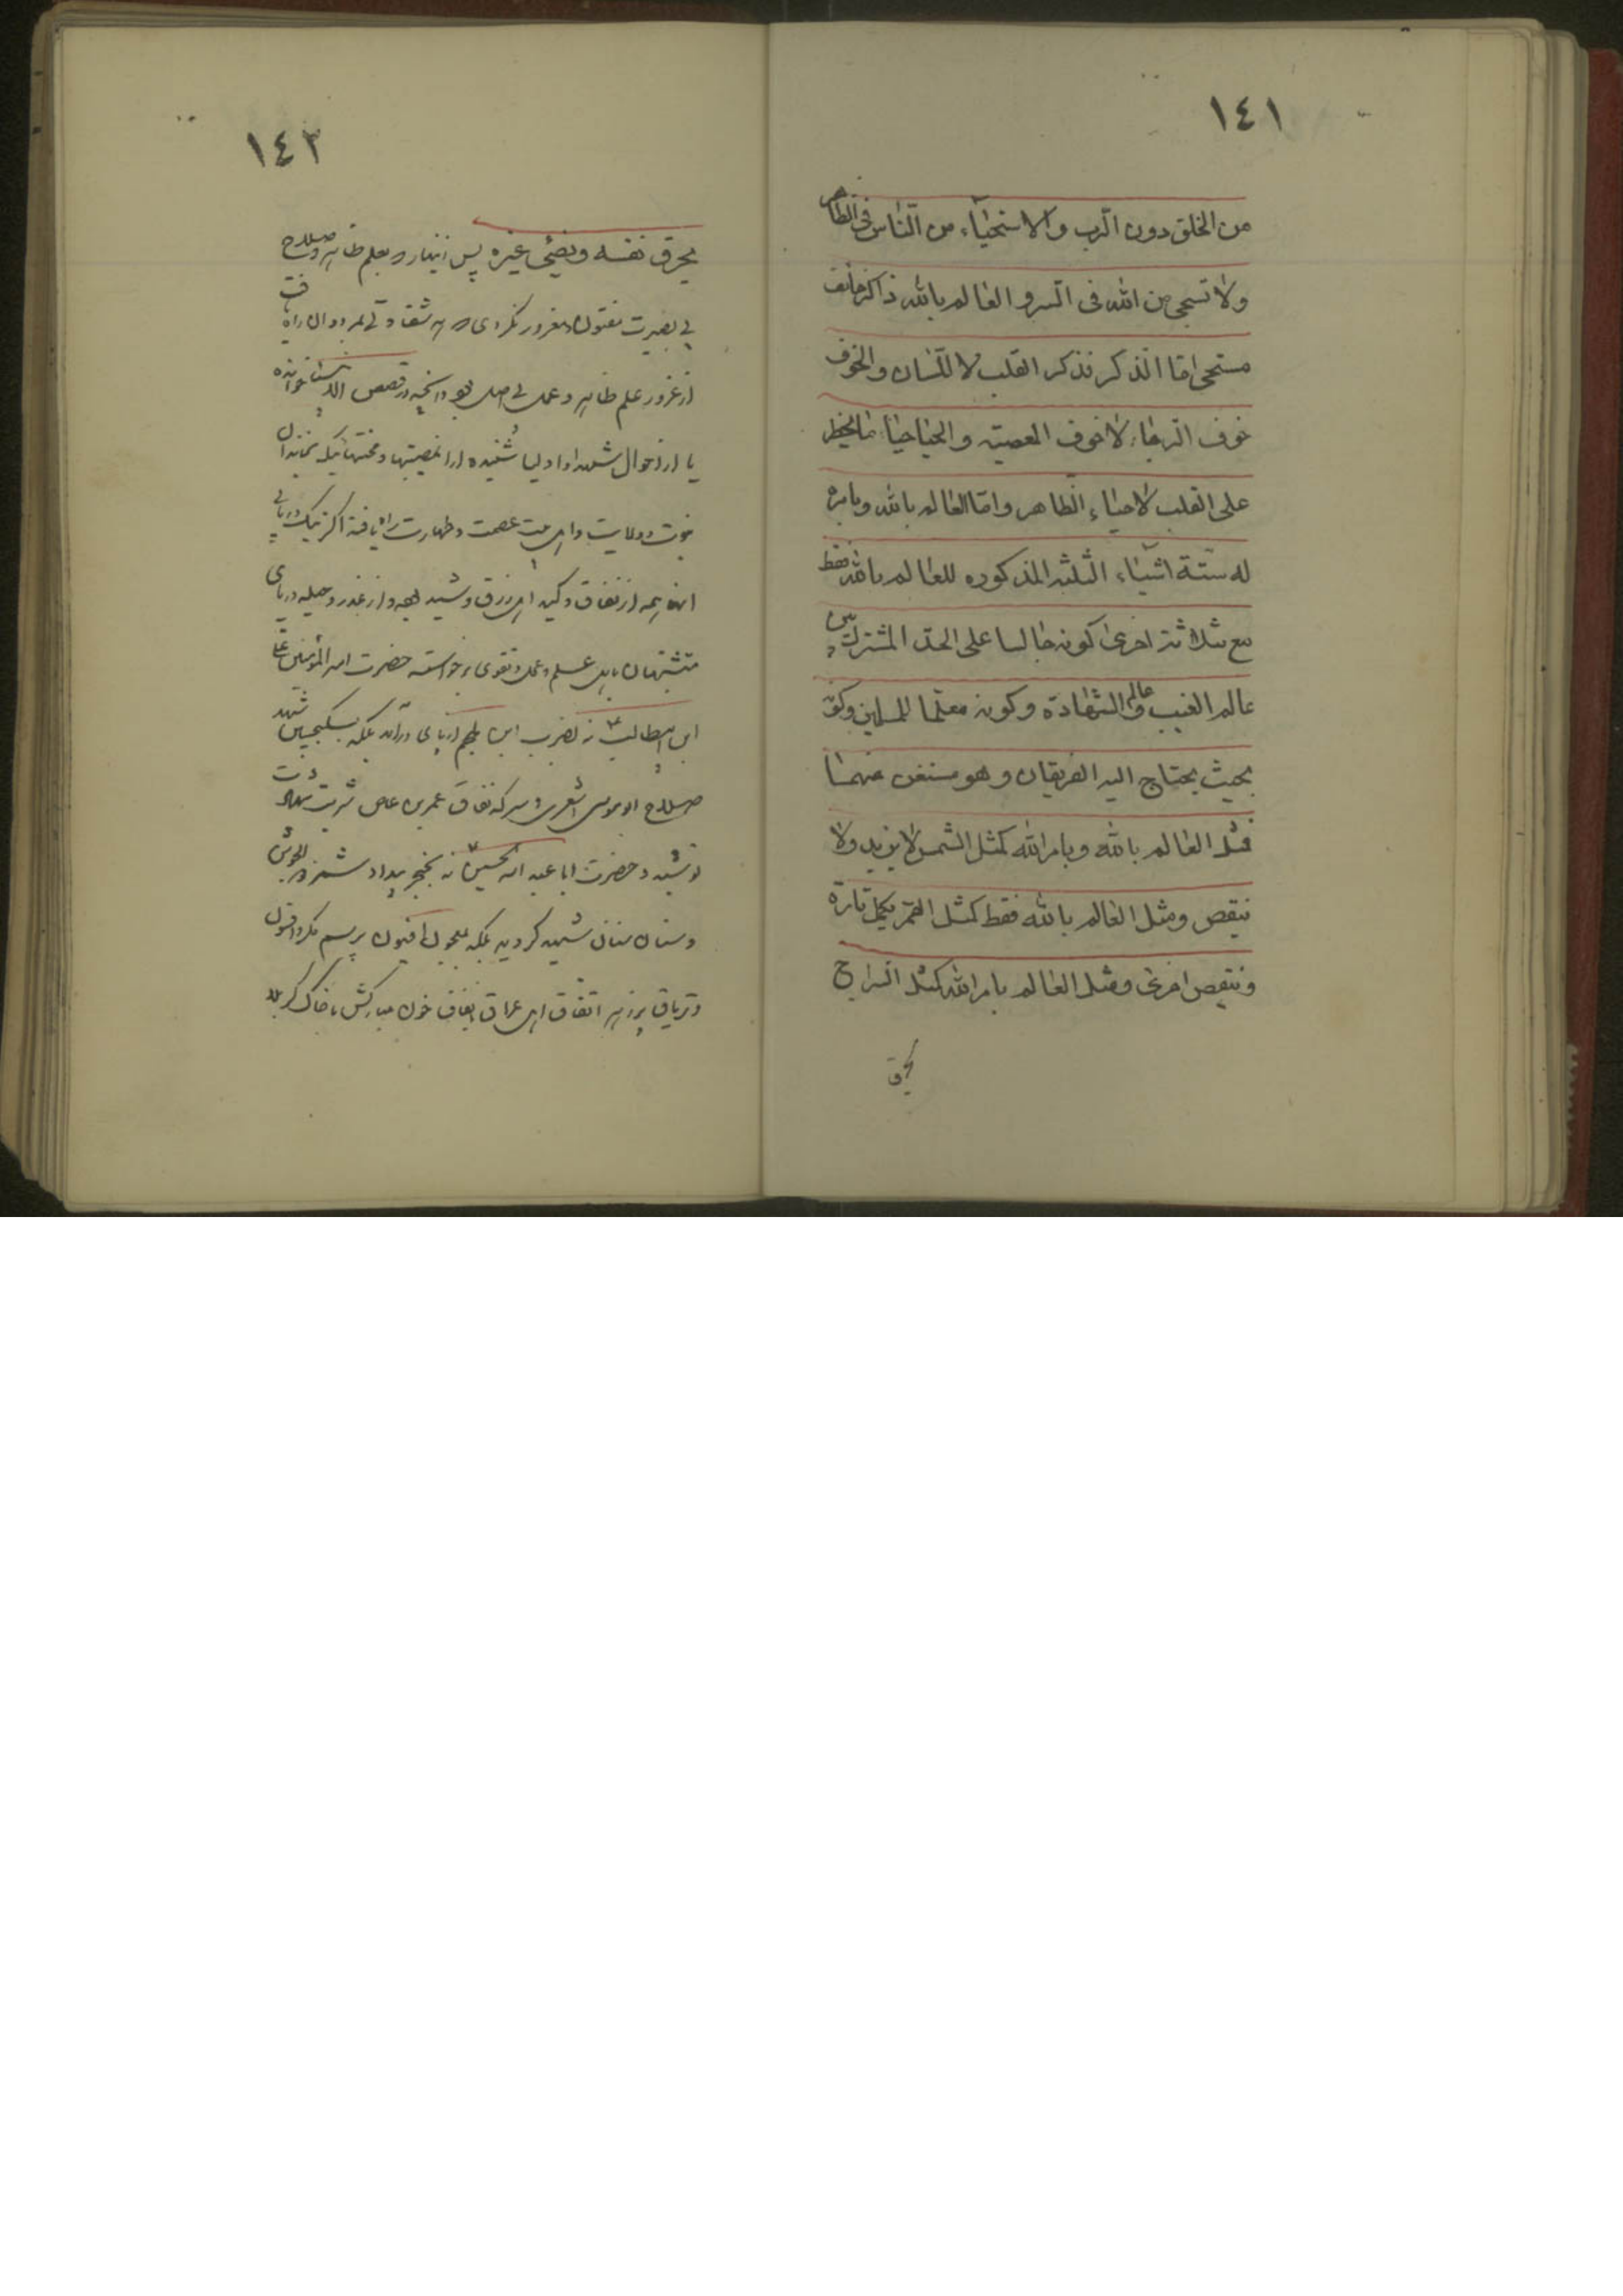 ١٤١
من الخلق دون الرب والاستحياء من الناس فى الظاهر
ولا تستحى من الله فى السر و العالم بالله ذاكر خائف
مستحى اما الذكر فذكر القلب لا اللسان والخوف
خوف الرجاء لا خوف المعصية والحيا حيا ما يخطر
على القلب لا حياء الظاهر واما العالم بالله وبامره
له ستة اشياء الثلثه المذكوره للعالم بالله فقط
مع ثلاثة اخرى كونه جالسا على الحد المشترك بين
عالم الغيب وعالم الشهادة وكونه معلما للمسلمين وكونه
بحيث يحتاج اليه الفريقان وهو مستغن عنهما
فمثل العالم بالله وبامر الله كمثل الشمس لا يزيد ولا
ينقص ومثل العالم بالله فقط كمثل القمر يكمل تارة
وينقص اخرى ومثل العالم بامر الله كمثل السراج
يحرق
١٤٢
يحرق نفسه ويضيئ غيره پس زينهار بعلم ظاهر و صلاح
بى بصيرت مفتون ومغرور نكردى كه هر شقاوتى كه بمردودان راه يافت
از غرور علم ظاهر و عمل بى اصل بود و آنچه در قصص انبيا خوانده
يا از احوال شهدا و اوليا شنيده از مصيبتها و محنتهائيكه بخاندان
نبوت و ولايت و اهل بيت عصمت و طهارت راه يافته اكر نيك دريابى
انهمه از نفاق و كيد اهل زرق و شيد و از غدر و حيله در پاى
متشبهان باهل علم و عمل و تقوى برخواسته حضرت امير المؤمنين على
ابن ابيطالب ع نه بضرب ابن ملجم از پاى درآمد بلكه بسكنجبين شهد
صلاح ابو موسى اشعرى و سركه نفاق عمر بن عاص شربت شهادت
نوشيد و حضرت ابا عبد الله الحسين ع نه بخنجر بيداد شمر ذى الجوشن
و سنان سنان شهيد كرديد بلكه بمعجون افيون پر سم مكر و افسون
و ترياق پر زهر اتفاق اهل عراق بنفاق خون مباركش با خاك كربلا